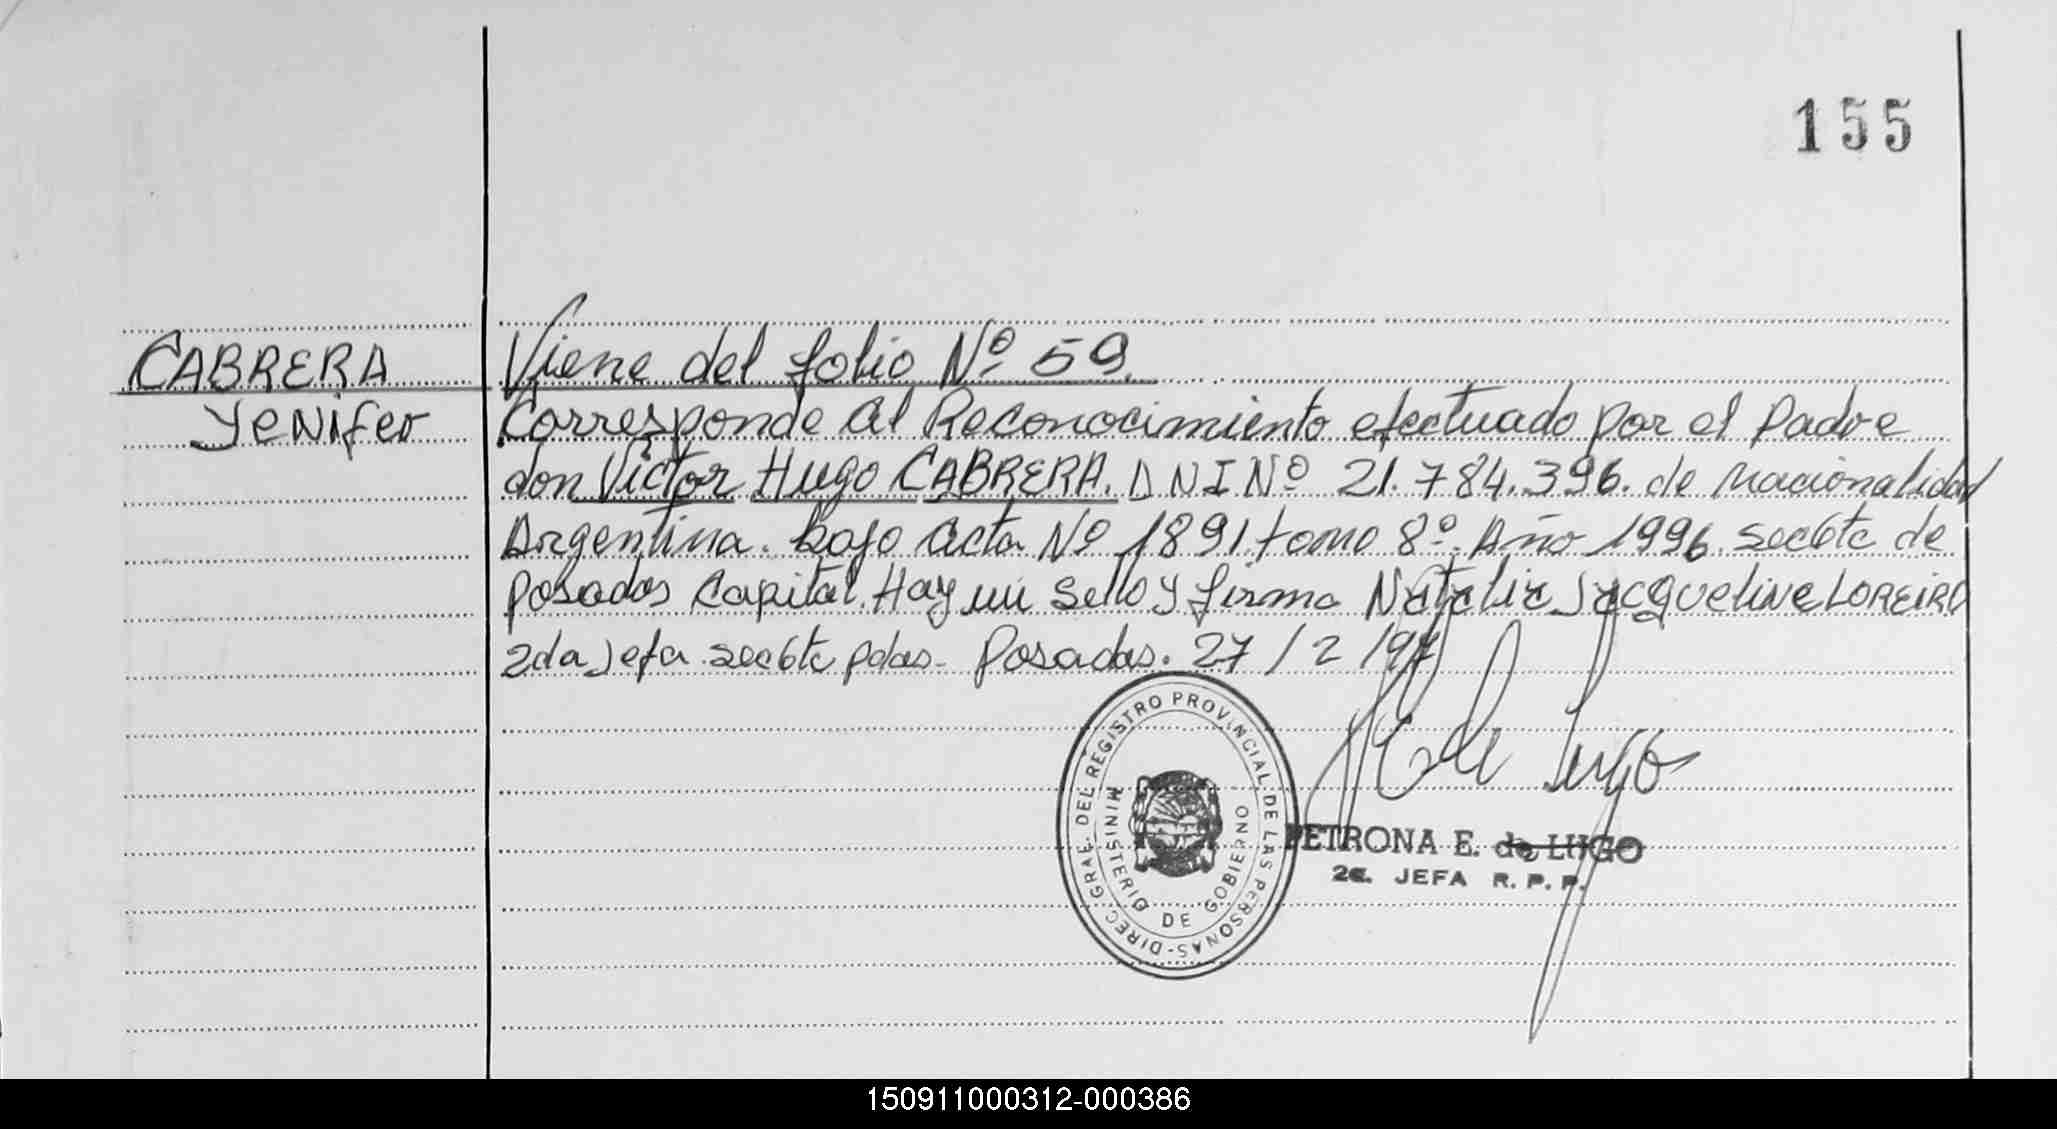 155
CABRERA
Yenifer
Viene del folio Nº 59.
Corresponde al Reconocimiento efectuado por el Padre
don Victor Hugo CABRERA. DNI Nº 21.784.396. de nacionalidad
Argentina. bajo acta Nº 1891 tomo 8º. Año 1996. secc6ta de
Posadas Capital. Hay un Sello y firma Natalia Jacqueline LOREIRO
2da Jefa secc6ta pdas. Posadas. 27/2/97
DIREC. GRAL. DEL REGISTRO PROVINCIAL DE LAS PERSONAS-
MINISTERIO DE GOBIERNO
PETRONA E. de LUGO
2a. JEFA R. P. P.
150911000312-000386